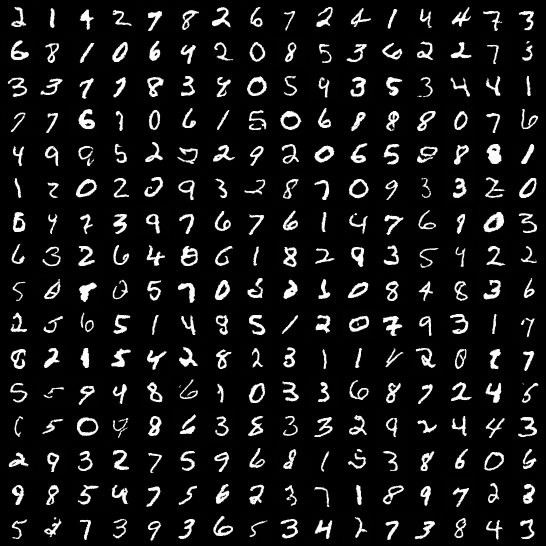 2 1 4 2 7 8 2 6 7 2 4 1 4 4 7 3
6 8 1 0 6 4 2 0 8 5 3 6 2 2 7 3
3 3 7 7 8 3 8 0 5 9 3 5 3 4 4 1
7 7 6 1 0 6 1 5 0 6 8 8 8 0 7 6
4 9 9 5 2 2 9 2 0 6 5 8 8 1
1 2 0 2 0 9 3 2 8 7 0 9 3 3 2 0
5 4 7 3 9 7 6 7 6 1 4 7 6 9 0 3
6 3 2 6 4 8 6 1 8 2 9 3 5 9 2 2
5 0 8 0 5 7 0 5 2 1 0 8 4 8 3 6
2 5 6 5 1 4 8 5 1 2 0 7 9 3 1 7
8 2 1 5 4 2 8 2 3 1 1 2 0 7
5 5 9 4 8 6 1 0 3 3 6 8 7 2 4 5
5 0 9 8 6 3 8 3 3 2 9 2 4 4 3
2 9 3 2 7 5 9 6 8 1 5 3 8 6 0 6
9 8 5 4 7 5 6 2 3 7 1 8 9 7 2 3
5 2 7 3 9 3 6 5 3 4 2 7 3 8 4 3